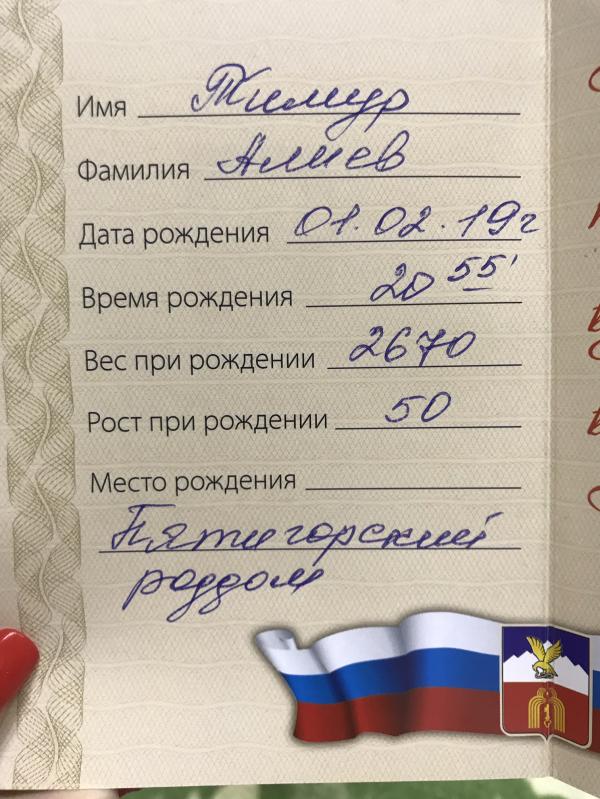 Имя Тимур
Фамилия Алиев
Дата рождения 01.02.19г
Время рождения 20 55'
Вес при рождении 2670
Рост при рождении 50
Место рождения
Пятигорский
роддом